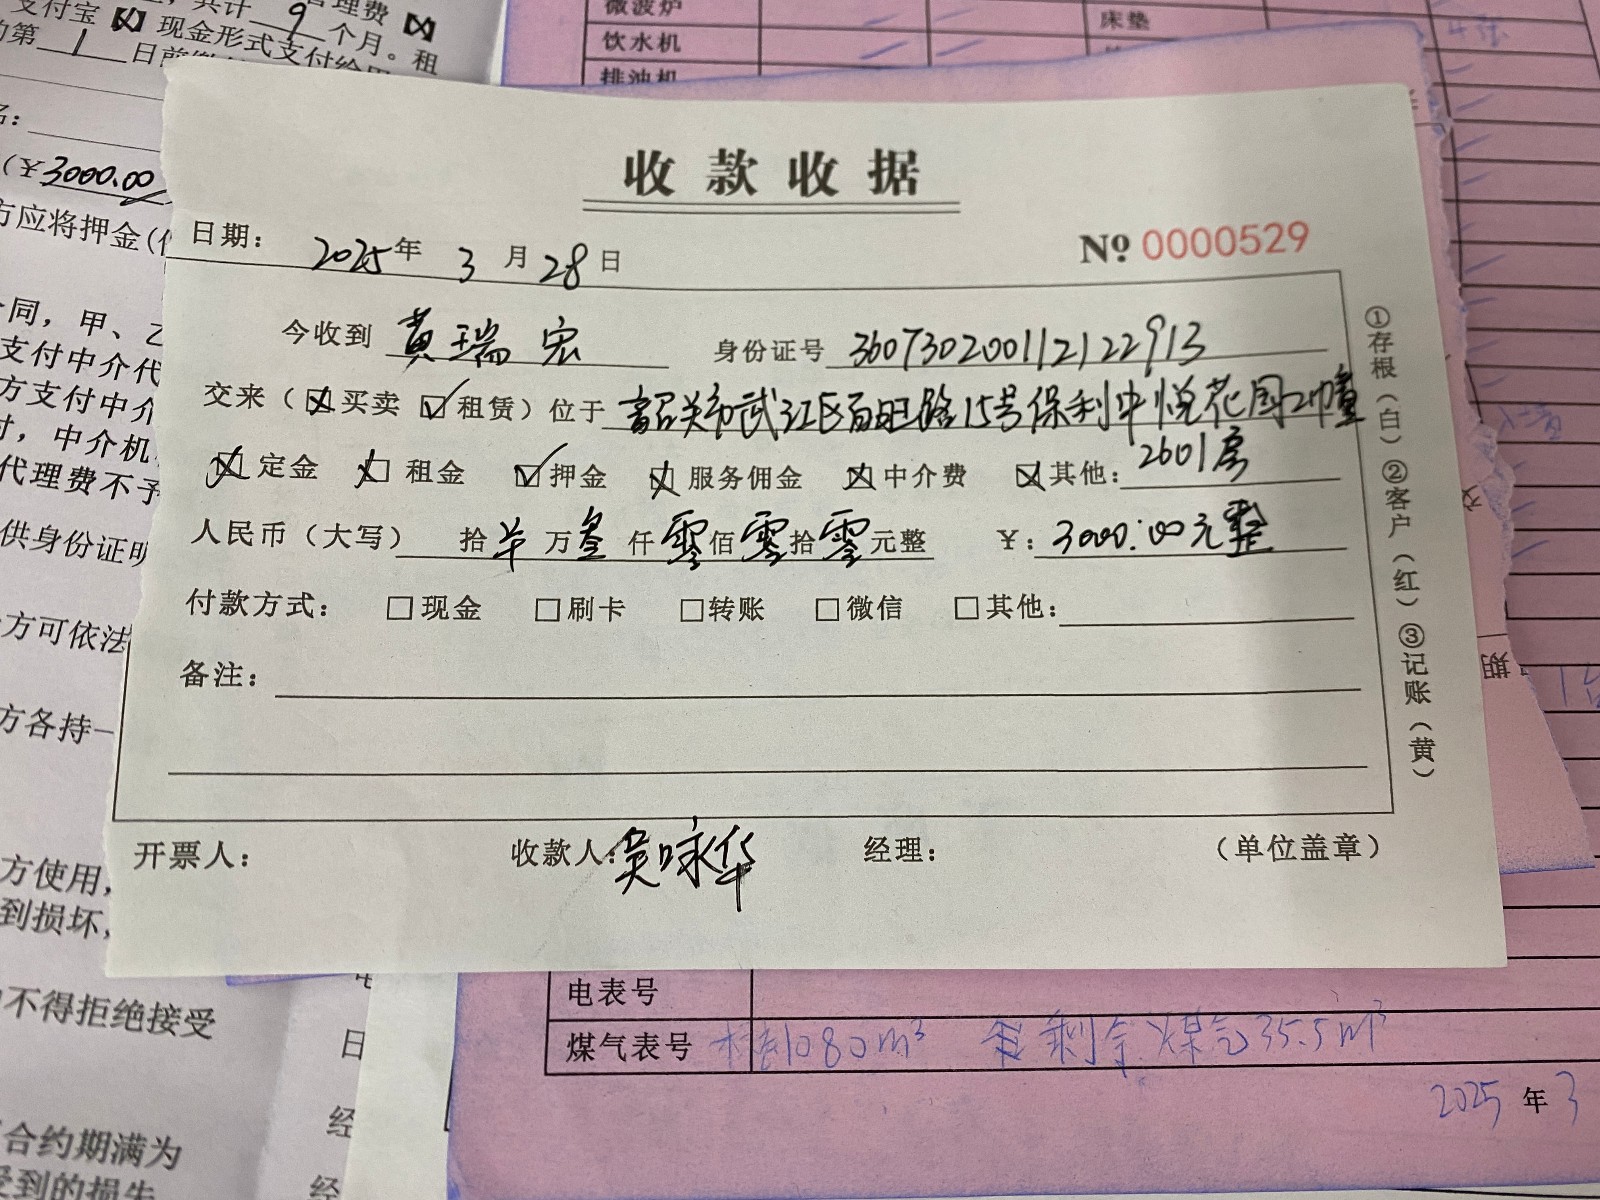 支付宝 现金形式支付给甲
共计 9 个月。租
的第 1 日前
(¥3000.00
方应将押金(
合同，甲、乙
支付中介代
方支付中介
付，中介机
代理费不予
供身份证明
方可依法
方各持一
方使用，
到损坏，
不得拒绝接受
合约期满为
受到的损失
微波炉
床垫
饮水机
排油机
收款收据
日期： 2025年 3 月 28 日
№ 0000529
今收到 黄瑞宏 身份证号 360730200112122913
交来（☒买卖 ☑租赁）位于 韶关市武江区百旺路15号保利中悦花园2幢
2601房
☒定金 ☒租金 ☑押金 ☒服务佣金 ☒中介费 ☒其他：
人民币（大写） 拾 羊 万 叁 仟 零 佰 零 拾 零 元整 ¥：3000.00元整
付款方式： □现金 □刷卡 □转账 □微信 □其他：
备注：
开票人： 收款人：吴咏华 经理： （单位盖章）
①存根（白）②客户（红）③记账（黄）
电表号
煤气表号 1080m³ 剩余煤气35.5m³
2025 年 3